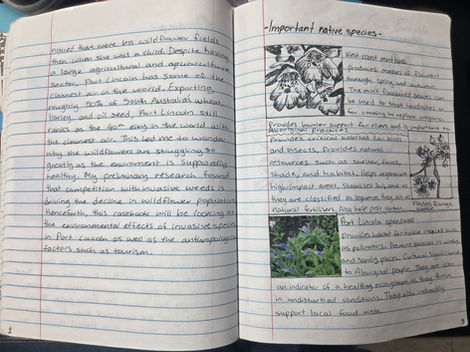 noticed there were less wildflower fields
then when she was a child. Despite having
a large agricultural and aquaculture
sector, Port Lincoln has some of the
cleanest air in the world. Exporting
roughly 50% of South Australia's wheat,
barley, and oil seed, Port Lincoln still
ranks as the 40th city in the world with
the cleanest air. This led me to wonder
why the wildflowers are struggling so
greatly as the environment is supposedly
healthy. My preliminary research found
that competition with invasive weeds is
driving the decline in wildflower population.
Henceforth, this casebook will be looking at
the environmental effects of invasive species
in Port Lincoln as well as the anthropological
factors such as tourism.
-Important native species-
West coast mintbush
produces masses of flowers
through spring and autumn.
The mint flavoured leaves can
be used to treat headaches
for cooking to replace origanum.
Provides barrier support for erosion and is important to
Aboriginal practices
Provides critical habitat for birds
and insects. Provides natural
resources such as shelter, food,
shade, and habitat. Helps regenerate
high-impact areas, stabilises soil, and as
they are classified as legumes they act as
natural fertilisers. Also help
Flinders Range
wattle
Port Lincoln speedwell
Provides habitat for native insects such
as pollinators. Prevent erosion in windy
and sandy places. Cultural significance
to Aboriginal people. They are also
an indicator of a healthy ecosystem as they thrive
in undisturbed conditions. They also indirectly
support local food webs.